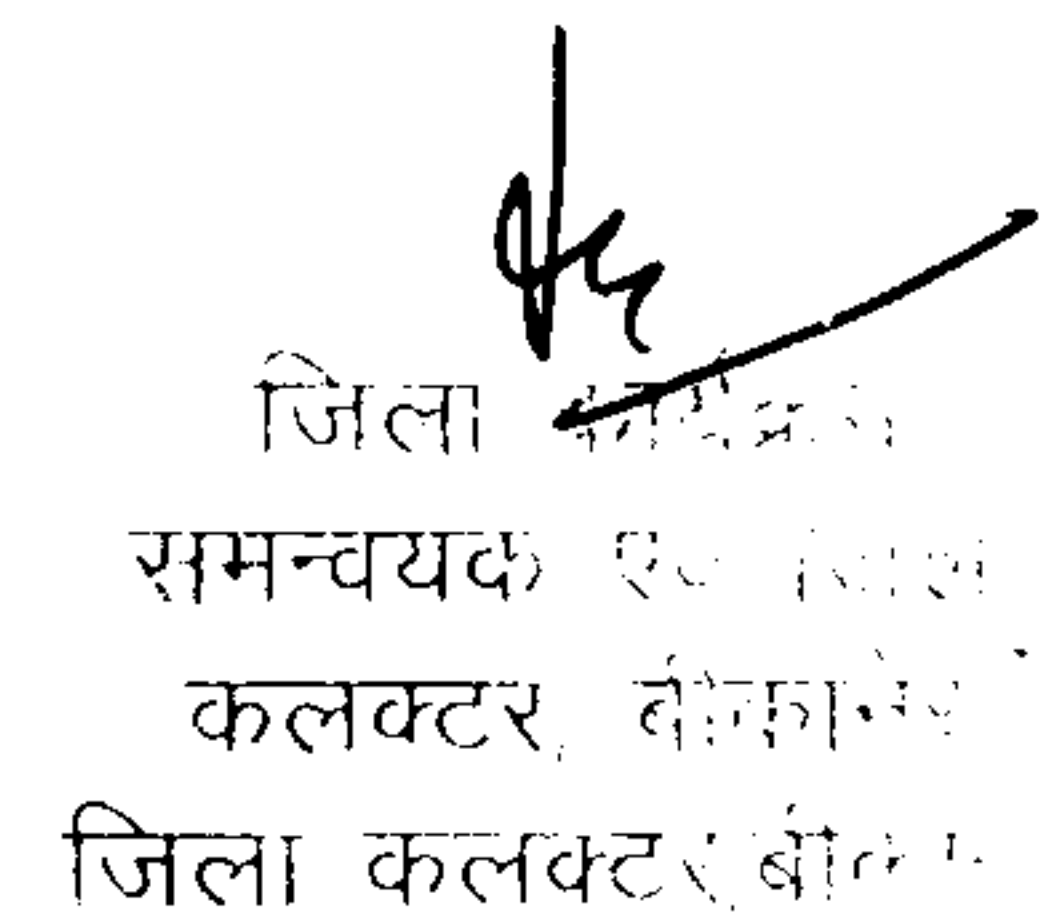 जिला
समन्वयक एवं जिला
कलक्टर, बीकानेर
जिला कलक्टर, बीका